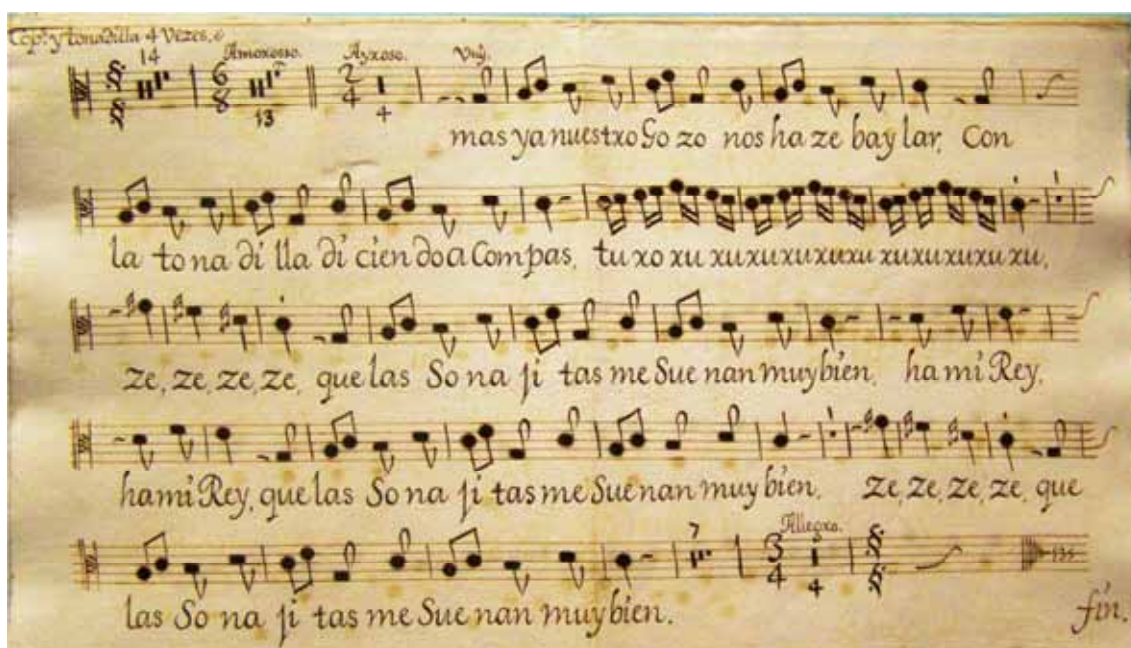 Cop.ˢ y tonadilla 4 Vezes.
14 Amoroso. Ayroso. Vnỹ.
6 8 13 2 4 4
mas ya nuestro Gozo nos haze baylar, Con
la tonadilla diciendo a Compas, turo ru rurururu rurururu ru,
ze, ze, ze, ze, que las Sonajitas me Suenan muy bien, ha mi Rey,
ha mi Rey, que las Sonajitas me Suenan muy bien. ze, ze, ze, ze, que
7 Allegro.
3 4 4
las Sonajitas me Suenan muy bien.
fin.